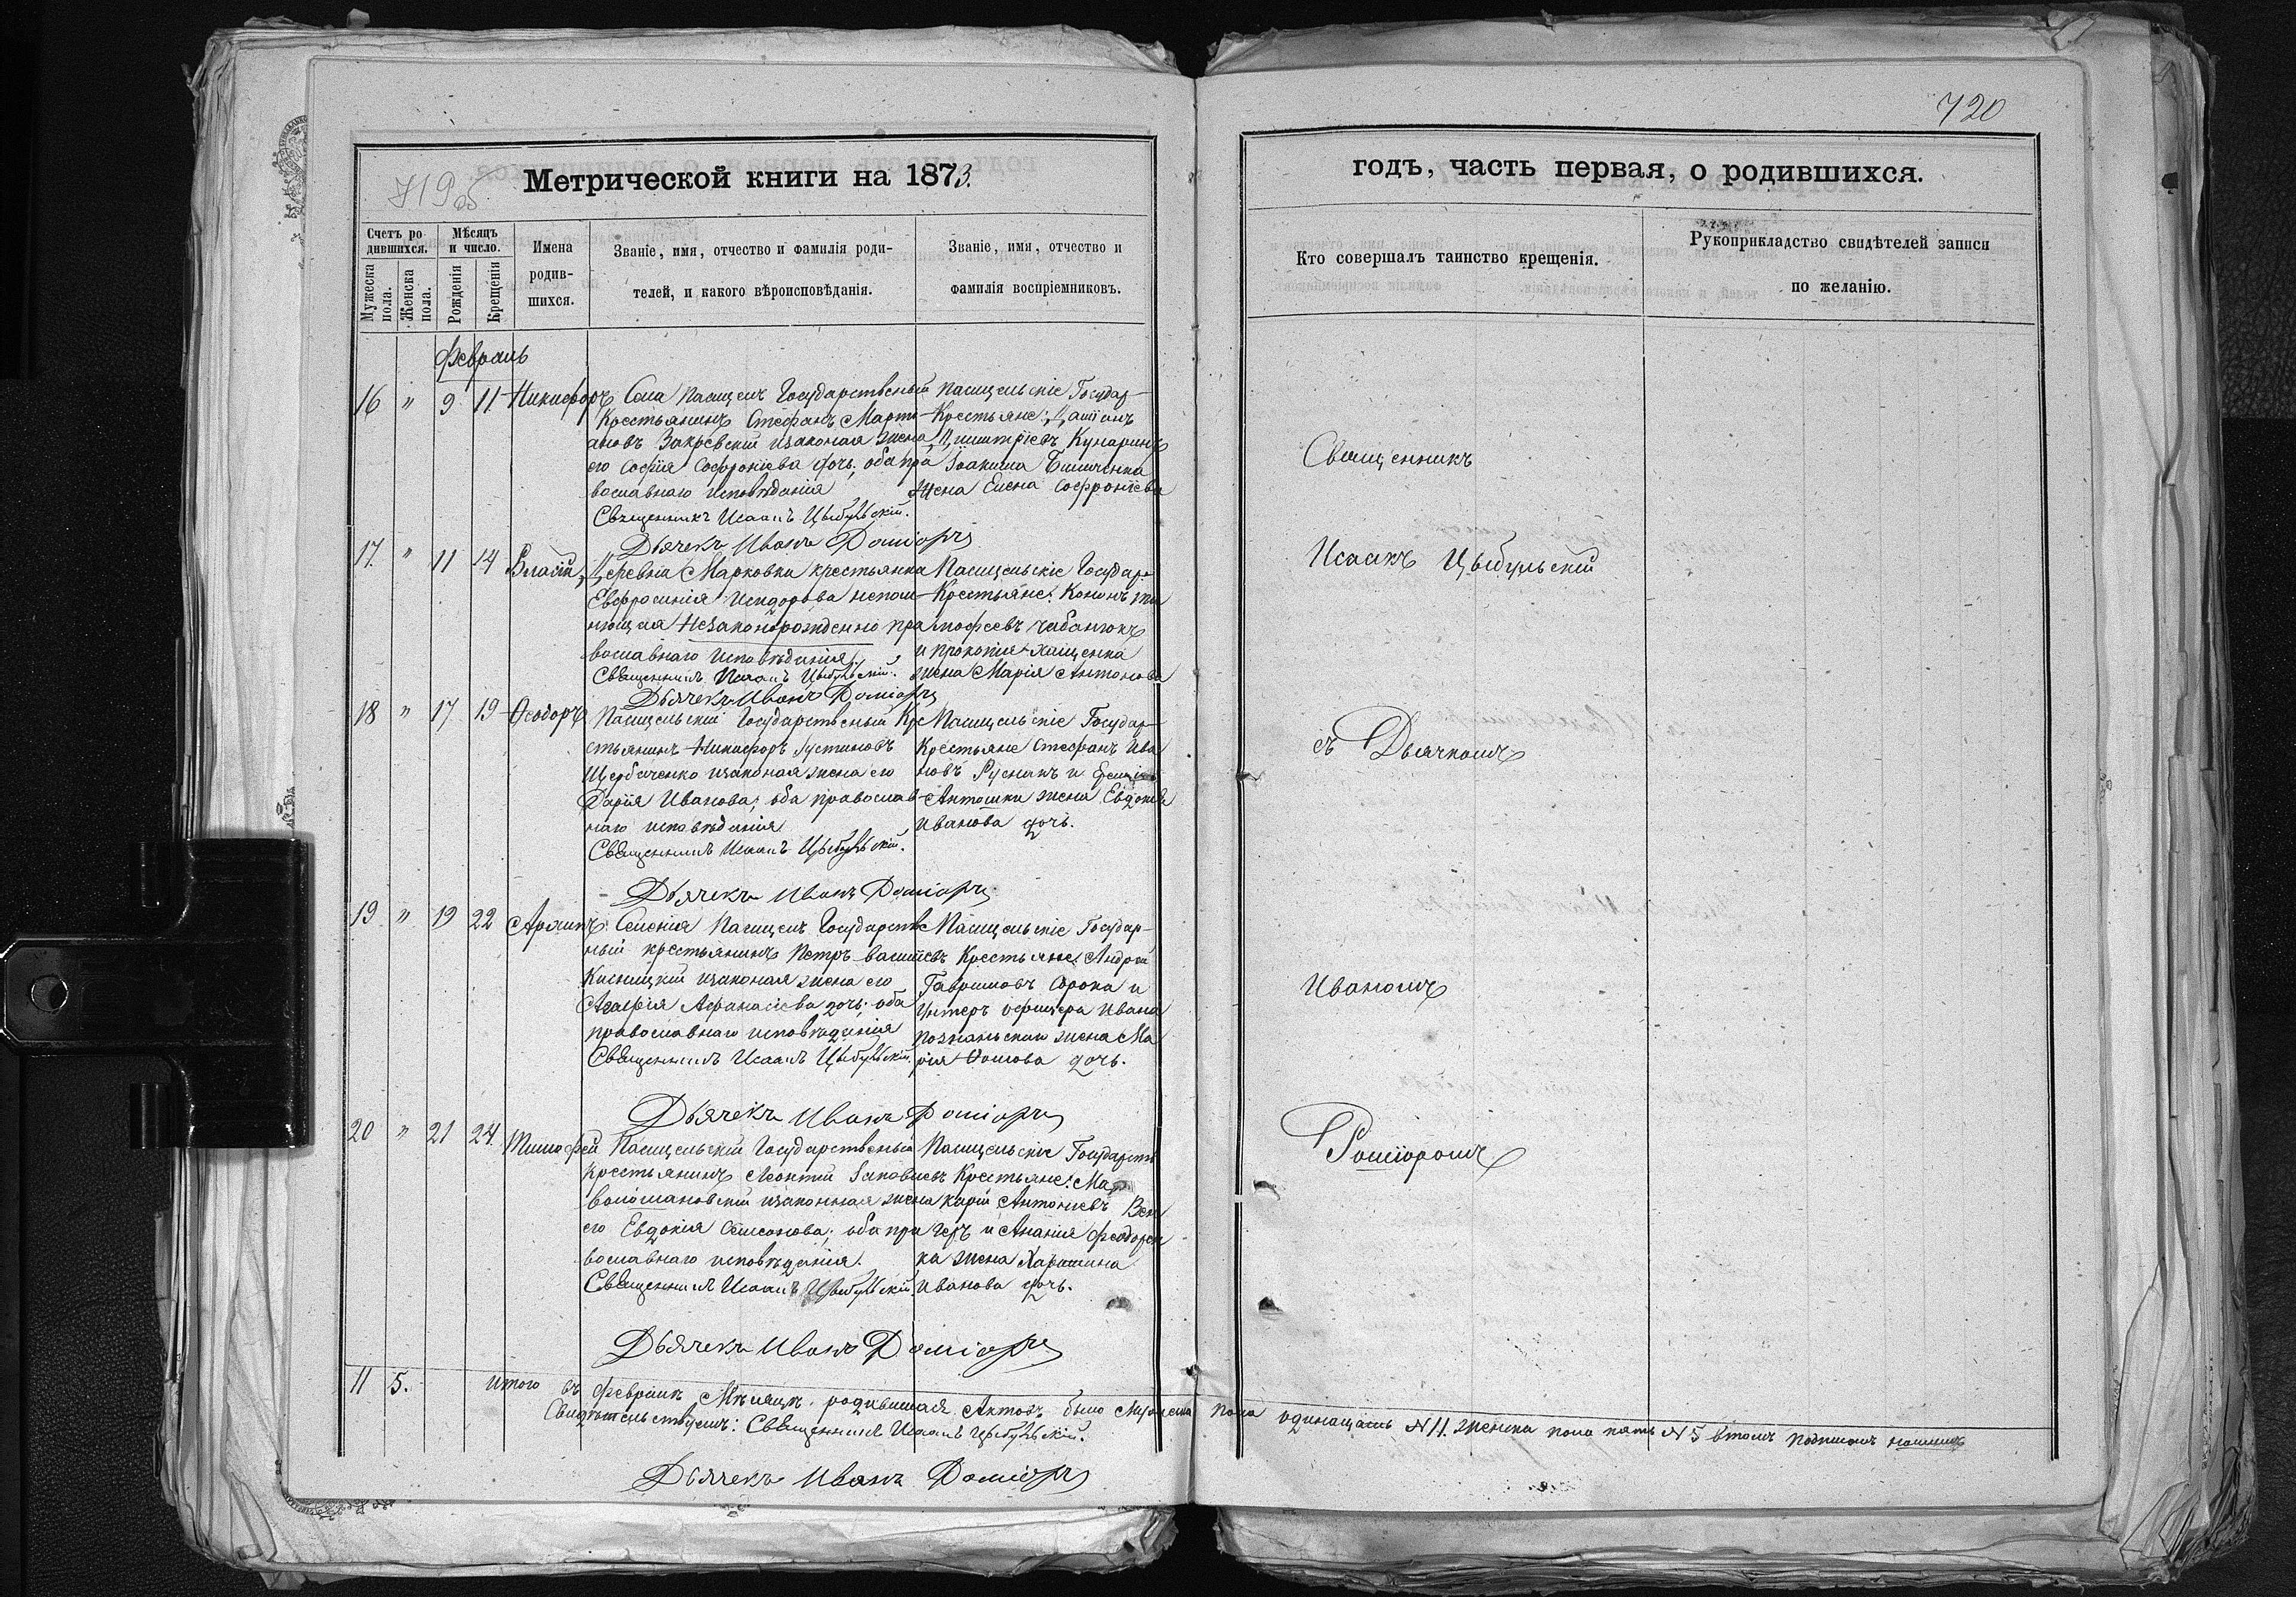 719об
Метрической книги на 1873.
Счетъ ро
дившихся.
Мужеска
пола.
Женска
пола.
Мѣсяцъ
и число.
Рожденія
Крещенія
Имена
родив-
шихся.
Званіе, имя, отчество и фамилія роди-
телей, и какого вѣроисповѣданія.
Званіе, имя, отчество и
фамилія воспріемниковъ.
Февраль
16 " 9 11 Никифоръ Села Пасицелъ Государственый
Крестьянинъ Стефанъ Марти-
ановъ Закревскій изаконая жена
его Софія Софроніева дочь; оба пра
вославнаго исповѣданія
Священникъ Исаакъ Цыбульскій.
Дьячекъ Иванъ Доміоръ
Пасицельскіе Государ-
Крестьяне: Даміанъ
Димитріевъ Кунаринъ
Іоакима
жена Елена Софроніева
17. " 11 14 Власій Деревни Марковки крестьянка
Евфросинія Исидорова непом-
нющая Незаконорожденно пра
вославнаго исповѣданія.
Священникъ Исаакъ Цыбульскій.
Дьячекъ Иванъ Доміоръ
Пасицельскіе Государ-
Крестьяне: Кононъ Ти
мофеевъ Чабанюкъ
и Прокопія Хащенка
жена Марія Антонова
18 " 17 19 Ѳеодоръ Пасицельскій Государственый Кре
стьянинъ Никифоръ Іустиновъ
Щербаченко изаконая жена его
Дарія Иванова; оба православ-
наго исповѣданія
Священникъ Исаакъ Цыбульскій.
Дьячекъ Иванъ Доміоръ
Пасицельскіе Государ-
Крестьяне Стефанъ Ива
новъ Руснакъ и
Антошки жена Евдокія
Иванова дочь.
19 " 19 22 Селенія Пасицелъ Государстве
ный крестьянинъ Петръ Василіевъ
Кисницкій изаконая жена его
Агафія Афанасіева дочь; оба
православнаго исповѣданія
Священникъ Исаакъ Цыбульскій.
Дьячекъ Иванъ Доміоръ
Пасицельскіе Государ-
Крестьяне: Андрей
Гавриловъ Сорока и
Унтеръ офицера Ивана
Познанскаго жена Ма
рія Ѳомова дочь.
20 " 21 24 Тимофей Пасицельскій Государственый
Крестьянинъ Леонтій Іаковлевъ
Волошановскій изаконная жена
его Евдокія Самсонова; оба пра
вославнаго исповѣданія.
Священникъ Исаакъ Цыбульскій.
Дьячекъ Иванъ Доміоръ
Пасицельскіе Государств
Крестьяне: Ма
карій Антоніевъ Вен
геръ и Ананія Феодорен
ка жена Харитина
Иванова дочь.
11 5. Итого въ Февралѣ Мѣсяцѣ родившихся Актовъ было Мужеска пола одинацать №11. женска пола пять №5 втомъ подписомъ нашимъ
Свидѣтельствуемъ: Священникъ Исаакъ Цыбульскій.
Дьячекъ Иванъ Доміоръ
720
годъ, часть первая, о родившихся.
Кто совершалъ таинство крещенія.
Рукоприкладство свидѣтелей записи
по желанію.
Священникъ
Исаакъ Цыбульскій
съ Дьячкомъ
Иваномъ
Доміоромъ